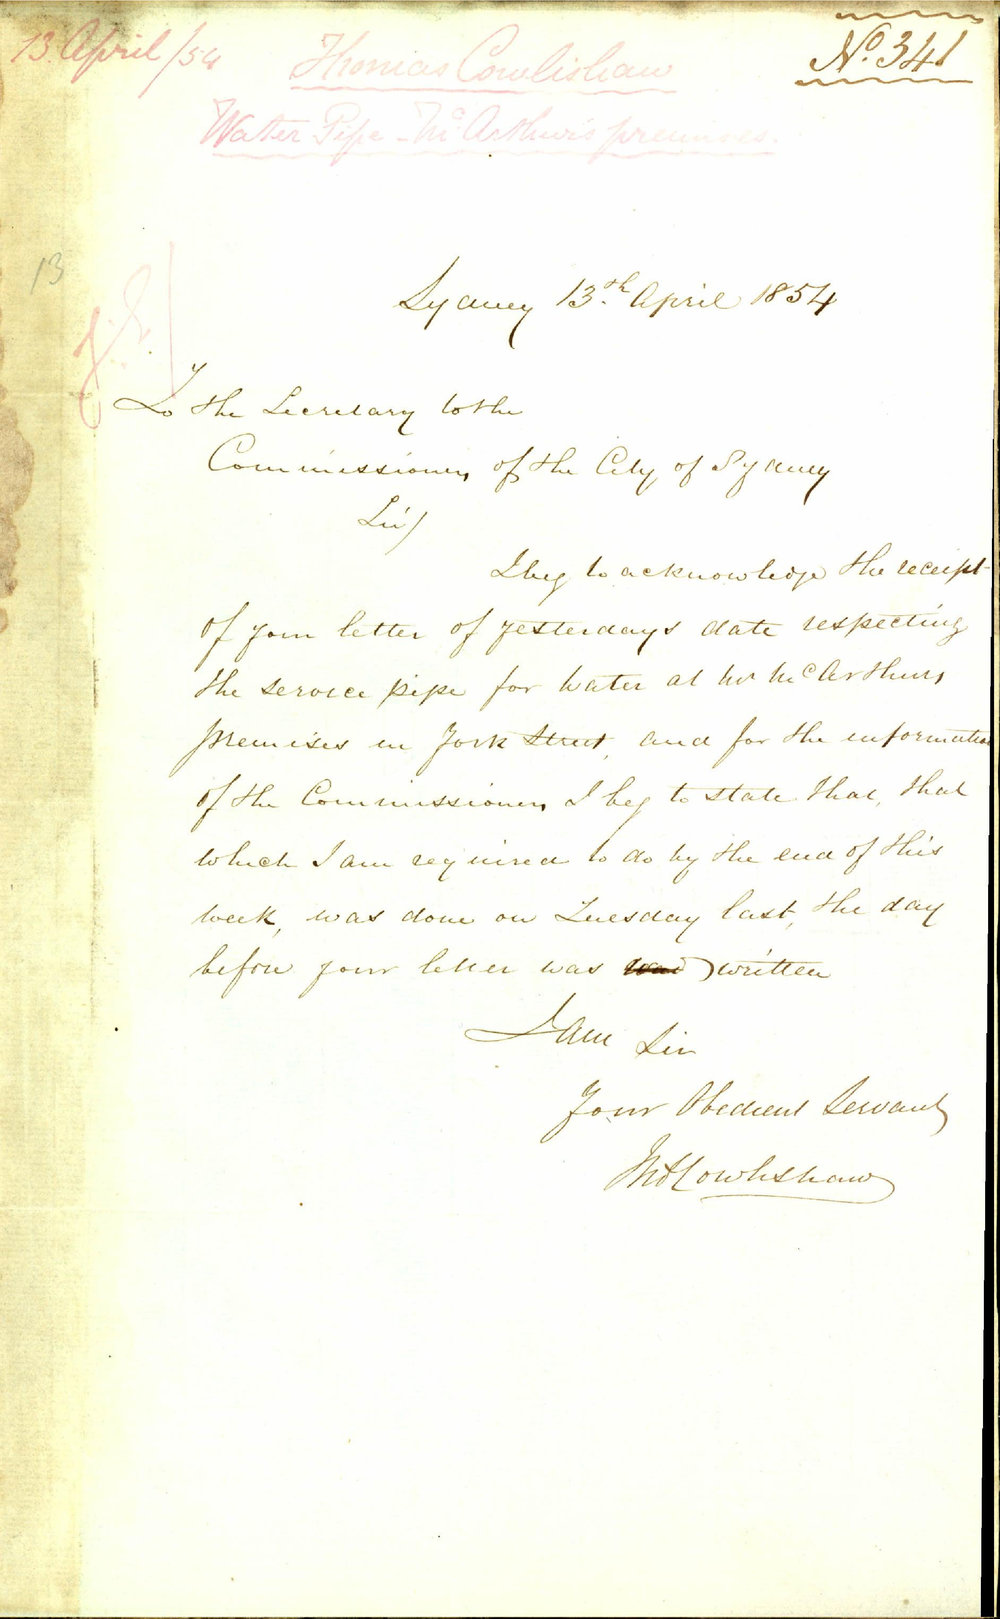 13 April/54
Thomas Cowlishaw
No. 341
Water Pipe - McArthur's premises.
13
Sydney 13.th April 1854
To the Secretary to the
Commissioners of the City of Sydney
Sir/
I beg to acknowledge the receipt
of your letter of yesterdays date respecting
the service pipe for water at Mr McArthurs
premises in York Street, and for the information
of the Commissioners I beg to state that, that
which I am required to do by the end of this
week, was done on Tuesday last, the day
before your letter was written
I am Sir
Your Obedient Servant
Cowlishaw